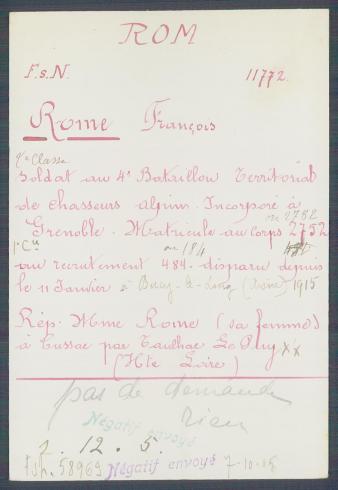 ROM
F.s.N. 11772.
Rome François
2e Classe
Soldat au 4e Bataillon Territorial
de chasseurs alpins. Incorporé à
ou 2782
Grenoble. Matricule au corps 2752
1e Cie ou 184
au recrutement 484. disparu depuis
le 11 Janvier à Bucy-le-Long (Aisne) 1915
Rép. Mme Rome (sa femme)
à Cussac par Taulhac Le Puy xx
(Hte Loire)
pas de demande
rien
Négatif envoyé
1. 12. 5.
58969 Négatif envoyé 7-10-15